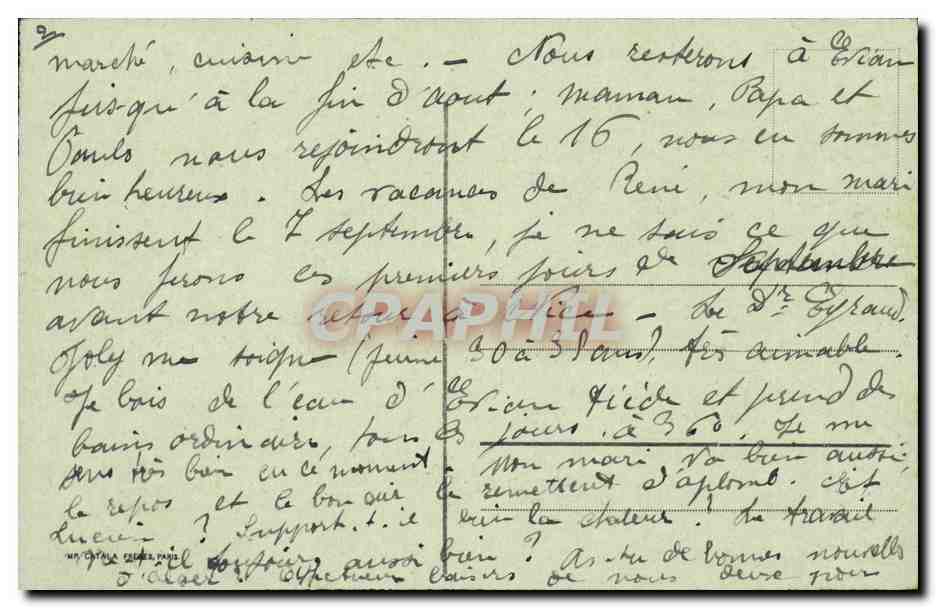 2
marché, cuisine etc. – Nous resterons à Evian
jusqu'à la fin d'aout ; maman, Papa et
nous rejoindront le 16, nous en sommes
bien heureux. Les vacances de René, mon mari
finissent le 7 septembre, je ne sais ce que
nous ferons ces premiers jours de Septembre
avant notre retour à Nice – Le Dr Eyraud
Joly me soigne (jeune 30 à 35 ans), très aimable.
Je bois de l'eau d'Evian tiède et prend des
bains ordinaires, tous les jours à 36°. Je me
sens très bien en ce moment. Mon mari va bien aussi,
le repos et le bon air le remettent d'aplomb. Et
Lucien ? Supporte-t-il bien la chaleur ? Le travail
toujours aussi bien ? As-tu de bonnes nouvelles
d'Alger ? baisers de nous deux pour
IMP. CATALA FRERES, PARIS
CPAPHIL